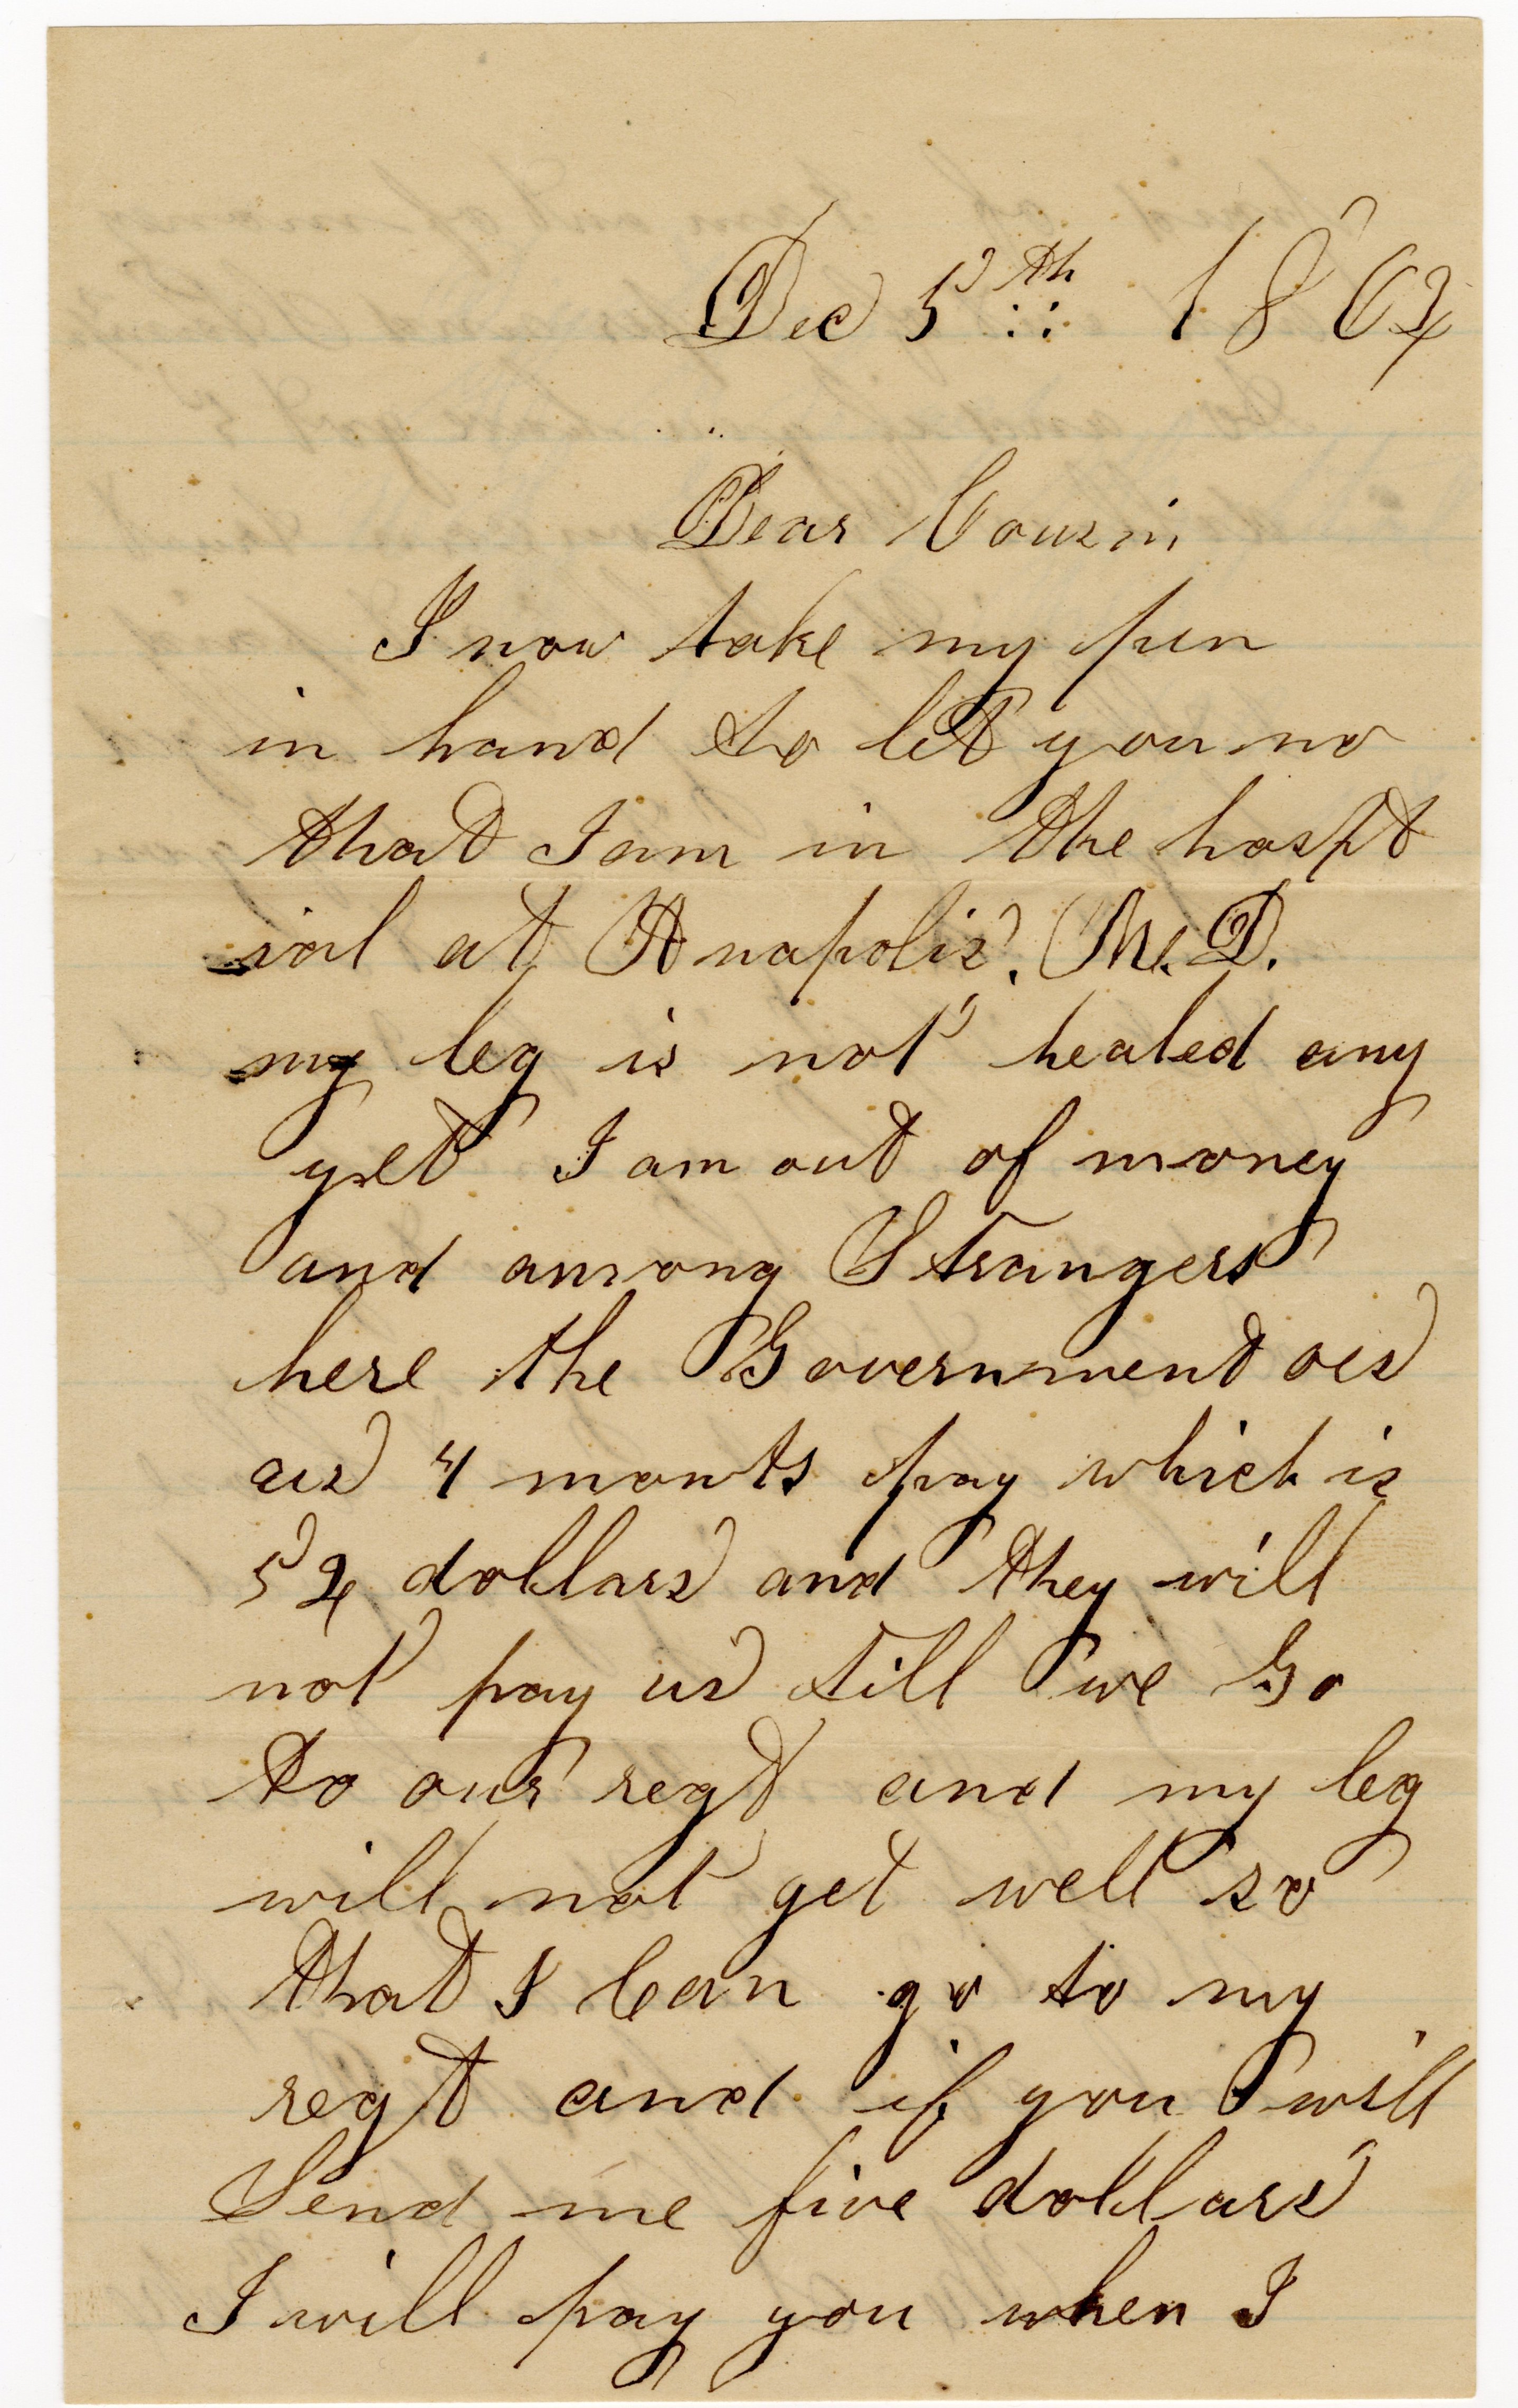 Dec 5th :: 1862
Dear Cousin
I now take my pen
in hand to let you no
that I am in the hospt
ial at Anapolis. M.D.
my leg is not healed any
yet I am out of money
and among Strangers
here the Government oes
us 4 monts pay which is
52 dollars and they will
not pay us till we Go
to our regt and my leg
will not get well so
that I Can go to my
regt and if you will
Send me five dollars
I will pay you when I